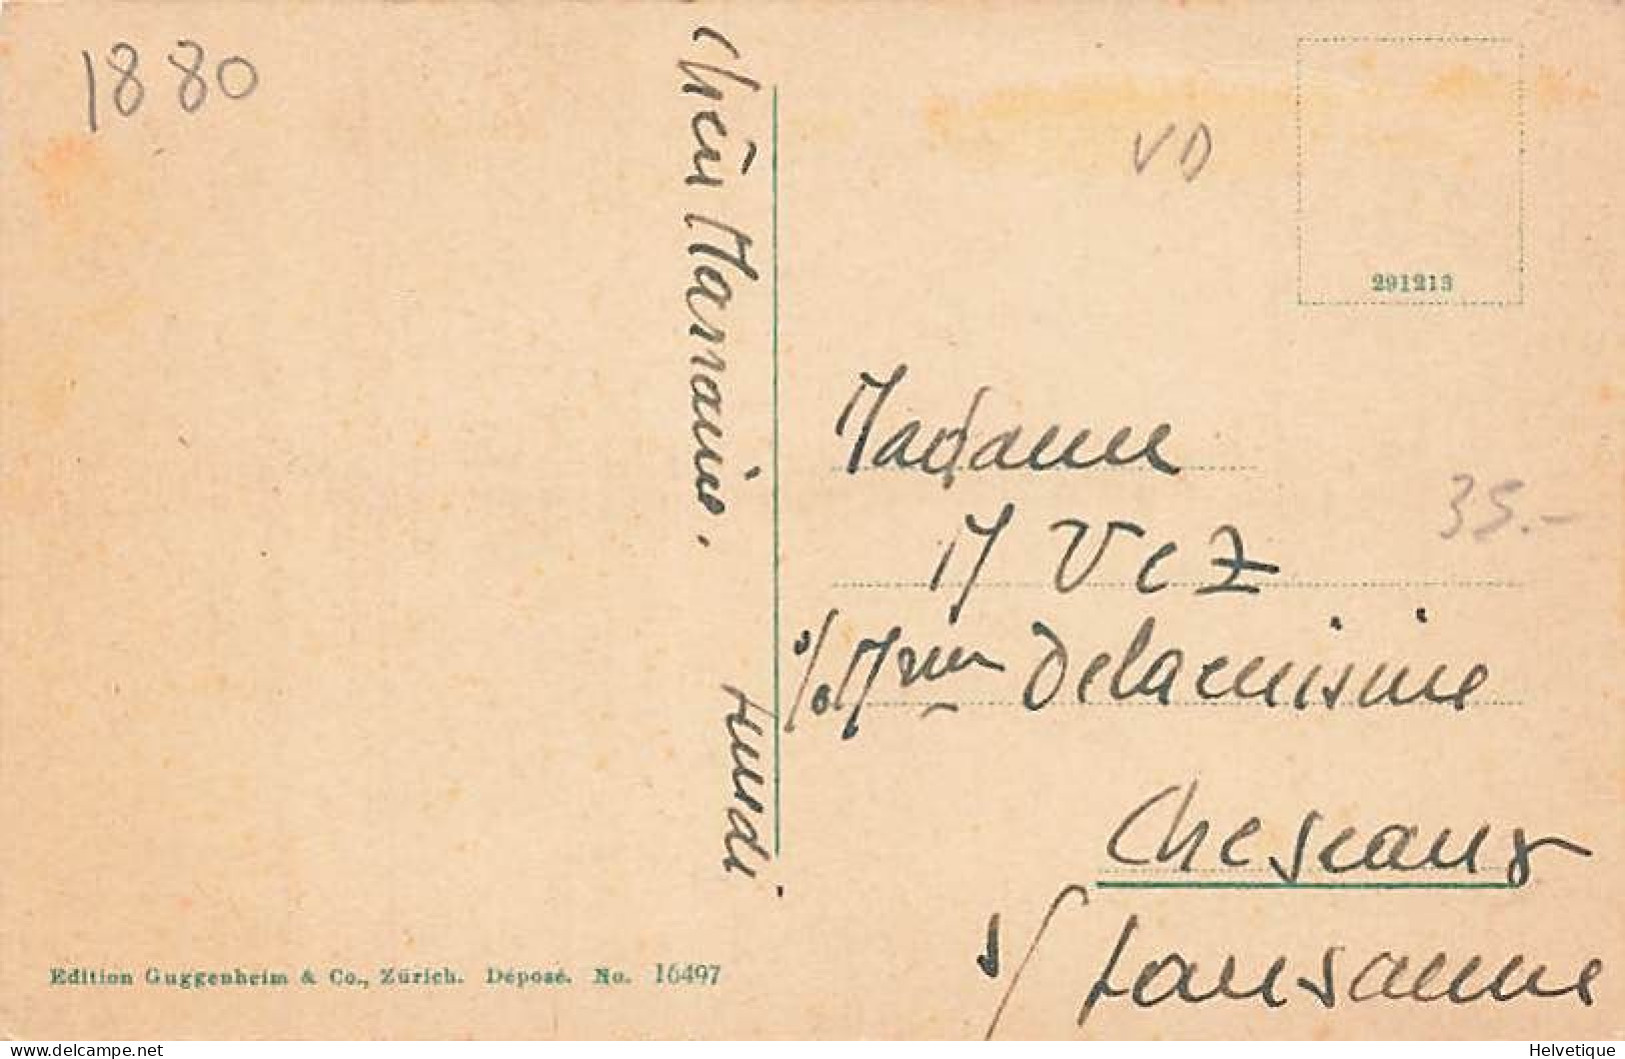 1880
VD
291213
Chère Marraine.
Lundi
Madame
M Vez
Mme Delacuisine
35.-
Cheseaux
s/ Lausanne
Edition Guggenheim & Co., Zürich. Déposé. No. 16497
delcampe.net
Helvetique